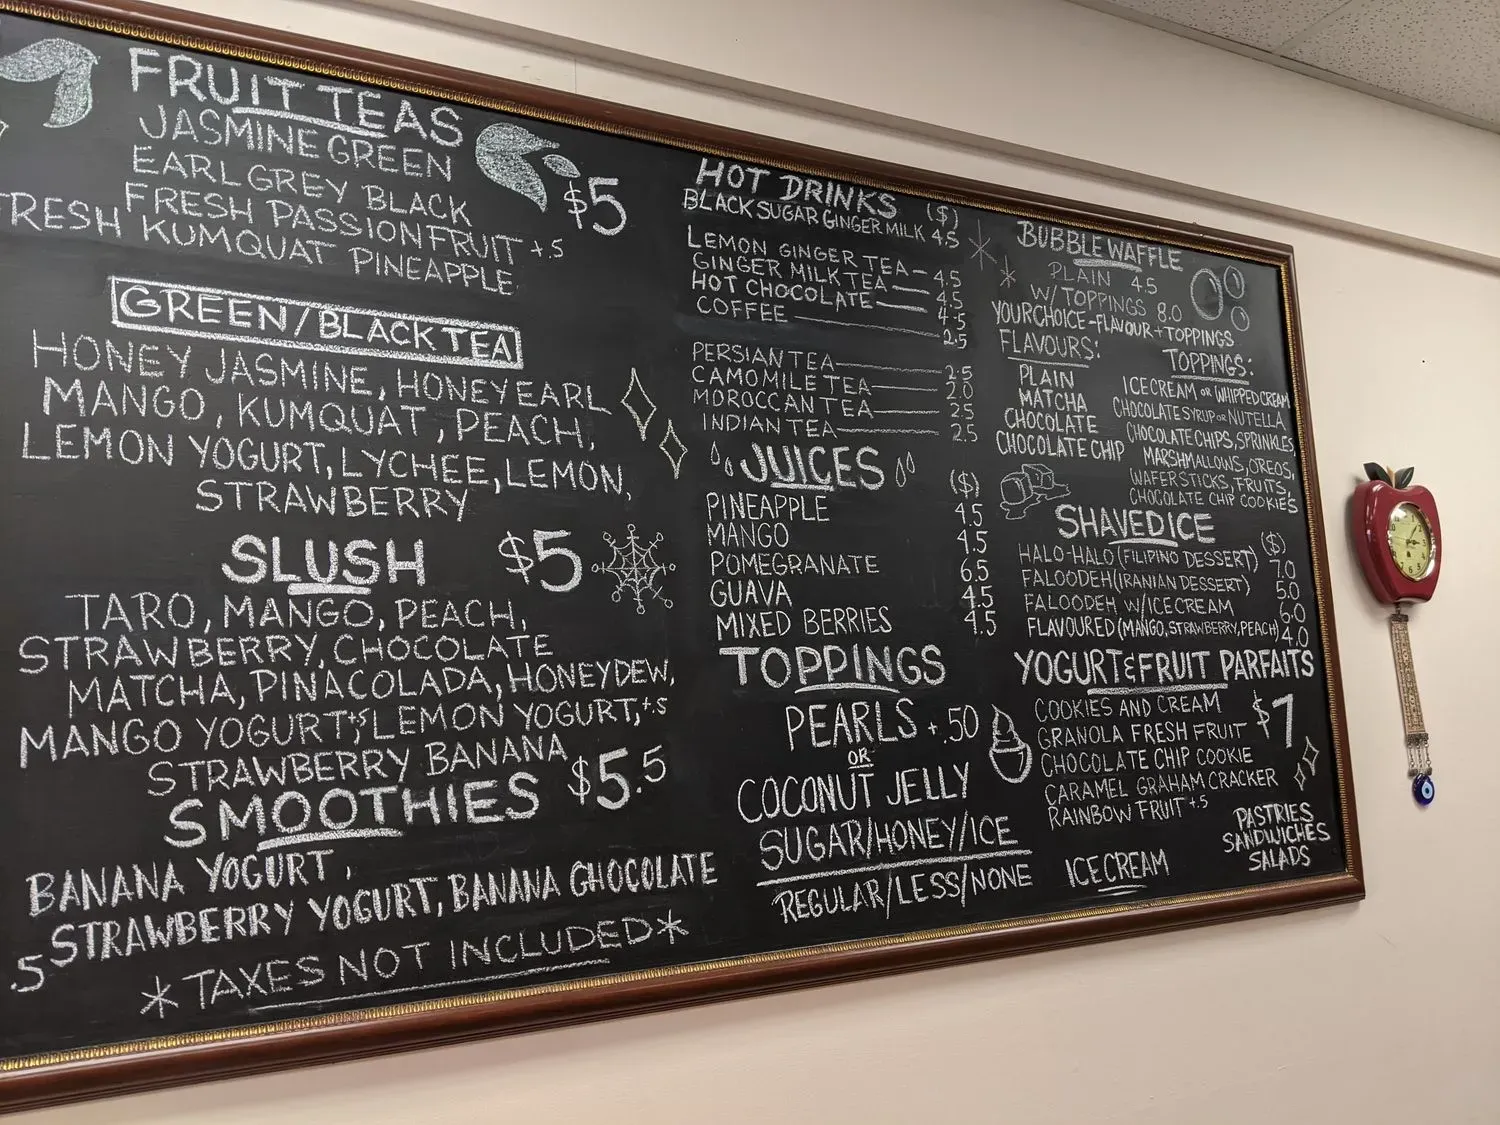 FRUIT TEAS
JASMINE GREEN
EARL GREY BLACK
FRESH PASSIONFRUIT +.5
FRESH KUMQUAT PINEAPPLE
$5
GREEN/BLACK TEA
HONEY JASMINE, HONEY EARL
MANGO, KUMQUAT, PEACH,
LEMON YOGURT, LYCHEE, LEMON,
STRAWBERRY
SLUSH $5
TARO, MANGO, PEACH,
STRAWBERRY, CHOCOLATE
MATCHA, PINACOLADA, HONEYDEW,
MANGO YOGURT+.5, LEMON YOGURT,+.5
STRAWBERRY BANANA
SMOOTHIES $5.5
BANANA YOGURT,
.5 STRAWBERRY YOGURT, BANANA CHOCOLATE
*TAXES NOT INCLUDED*
HOT DRINKS ($)
BLACK SUGAR GINGER MILK 4.5
LEMON GINGER TEA 4.5
GINGER MILK TEA 4.5
HOT CHOCOLATE 4.5
COFFEE 2.5
PERSIAN TEA 2.5
CAMOMILE TEA 2.0
MOROCCAN TEA 2.5
INDIAN TEA 2.5
JUICES ($)
PINEAPPLE 4.5
MANGO 4.5
POMEGRANATE 6.5
GUAVA 4.5
MIXED BERRIES 4.5
TOPPINGS
PEARLS +.50
OR
COCONUT JELLY
SUGAR/HONEY/ICE
REGULAR/LESS/NONE
BUBBLE WAFFLE
PLAIN 4.5
W/TOPPINGS 8.0
YOUR CHOICE-FLAVOUR+TOPPINGS
FLAVOURS:
PLAIN
MATCHA
CHOCOLATE
CHOCOLATE CHIP
TOPPINGS:
ICE CREAM OR WHIPPED CREAM
CHOCOLATE SYRUP OR NUTELLA
CHOCOLATE CHIPS, SPRINKLES,
MARSHMALLOWS, OREOS,
WAFER STICKS, FRUITS,
CHOCOLATE CHIP COOKIES
SHAVED ICE ($)
HALO-HALO (FILIPINO DESSERT) 7.0
FALOODEH (IRANIAN DESSERT) 5.0
FALOODEH W/ICE CREAM 6.0
FLAVOURED (MANGO, STRAWBERRY, PEACH) 4.0
YOGURT & FRUIT PARFAITS
COOKIES AND CREAM
GRANOLA FRESH FRUIT
CHOCOLATE CHIP COOKIE
CARAMEL GRAHAM CRACKER
RAINBOW FRUIT +.5
$7
ICE CREAM
PASTRIES
SANDWICHES
SALADS